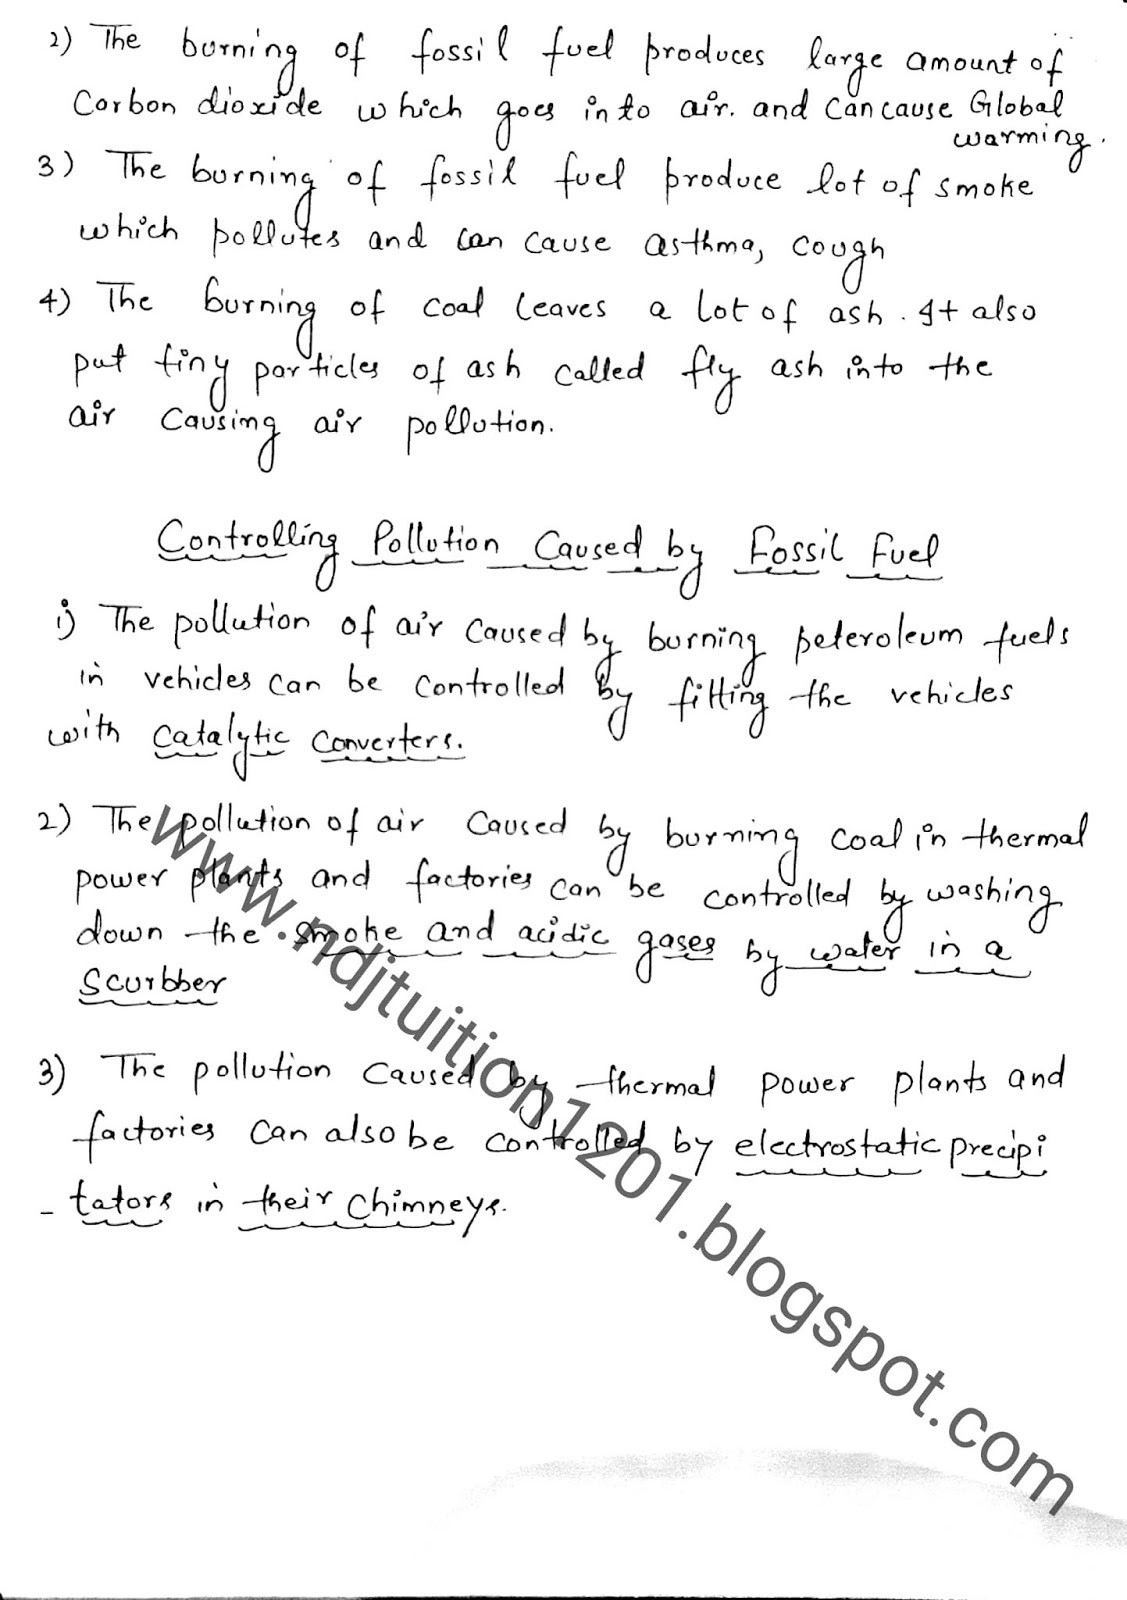 2) The burning of fossil fuel produces large amount of
Carbon dioxide which goes into air. and can cause Global
warming.
3) The burning of fossil fuel produce lot of smoke
which pollutes and can cause asthma, cough
4) The burning of coal leaves a lot of ash. It also
put tiny particles of ash called fly ash into the
air causing air pollution.
Controlling Pollution Caused by Fossil Fuel
1) The pollution of air caused by burning peteroleum fuels
in vehicles can be controlled by fitting the vehicles
with catalytic converters.
2) The pollution of air caused by burning coal in thermal
power plants and factories can be controlled by washing
down the smoke and acidic gases by water in a
Scurbber
3) The pollution caused by thermal power plants and
factories can also be controlled by electrostatic precipi
- tators in their chimneys.
www.ndjtuition1201.blogspot.com